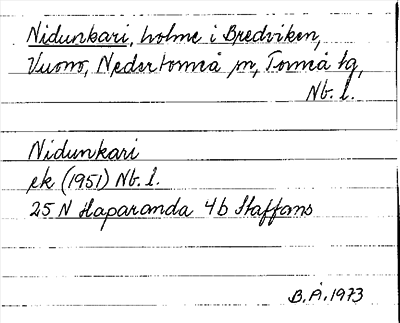 Nidunkari, holme i Bredviken,
Vuono, Nedertorneå sn, Torneå tg,
Nb. l.
Nidunkari
ek (1951) Nb. l.
25 N Haparanda 4b Staffans
B.Å. 1973